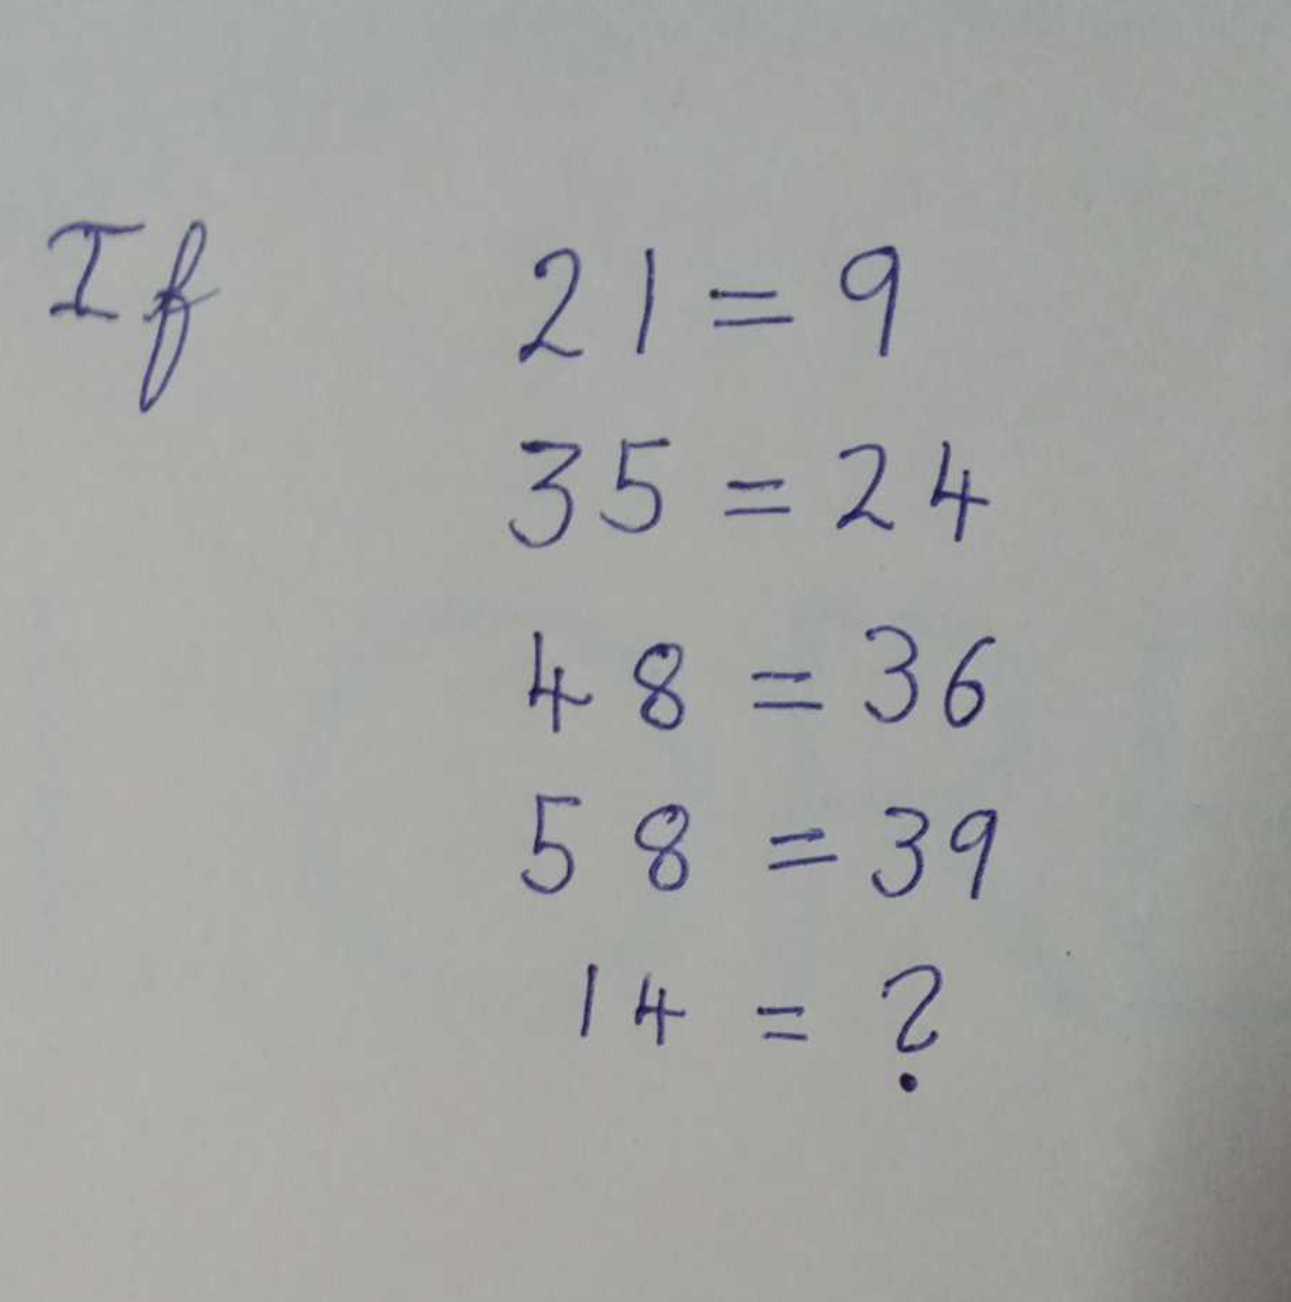 If 21 = 9
35 = 24
48 = 36
58 = 39
14 = ?